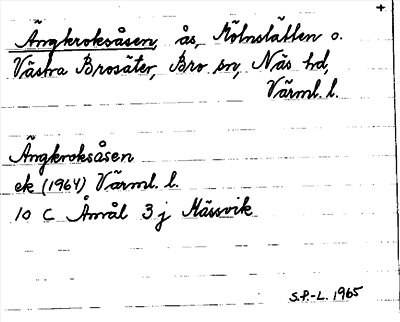 +
Ängkroksåsen, ås, Mölnslätten o.
Västra Brosäter, Bro sn, Näs hd,
Värml. l.
Ängkroksåsen
ek (1964) Värml. l.
10 C Åmål 3 j Mässvik
S.P.-L. 1965